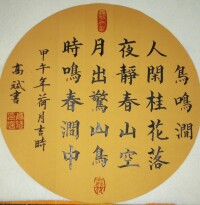 鳥鳴澗
人閑桂花落
夜靜春山空
月出驚山鳥
時鳴春澗中
甲午年荷月吉時
高斌書